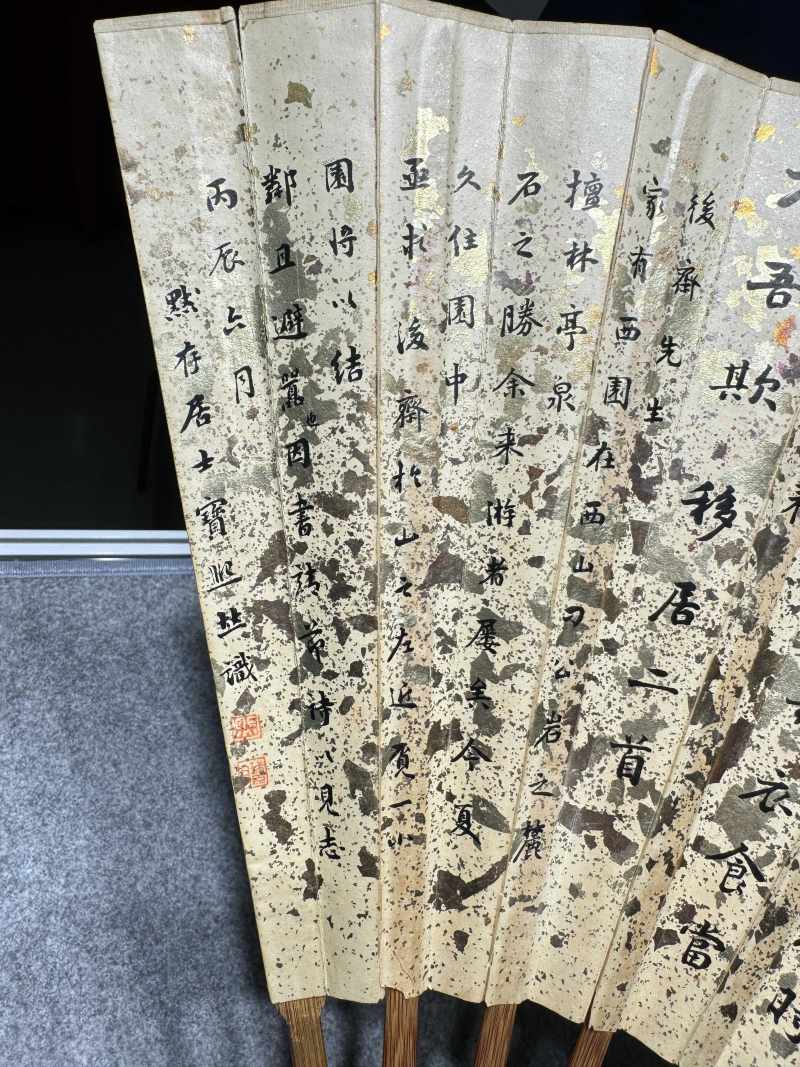 衣食當
不吾欺 移居二首
後齋先生
家有西園在西山刁公岩之麓
擅林亭泉
石之勝余来游者屡矣今夏
久住園中
亟求後齋於山之左近覓一小
園將以結
鄰且避嚣也因書靖節詩以見志
丙辰六月
默存居士寶熙並識